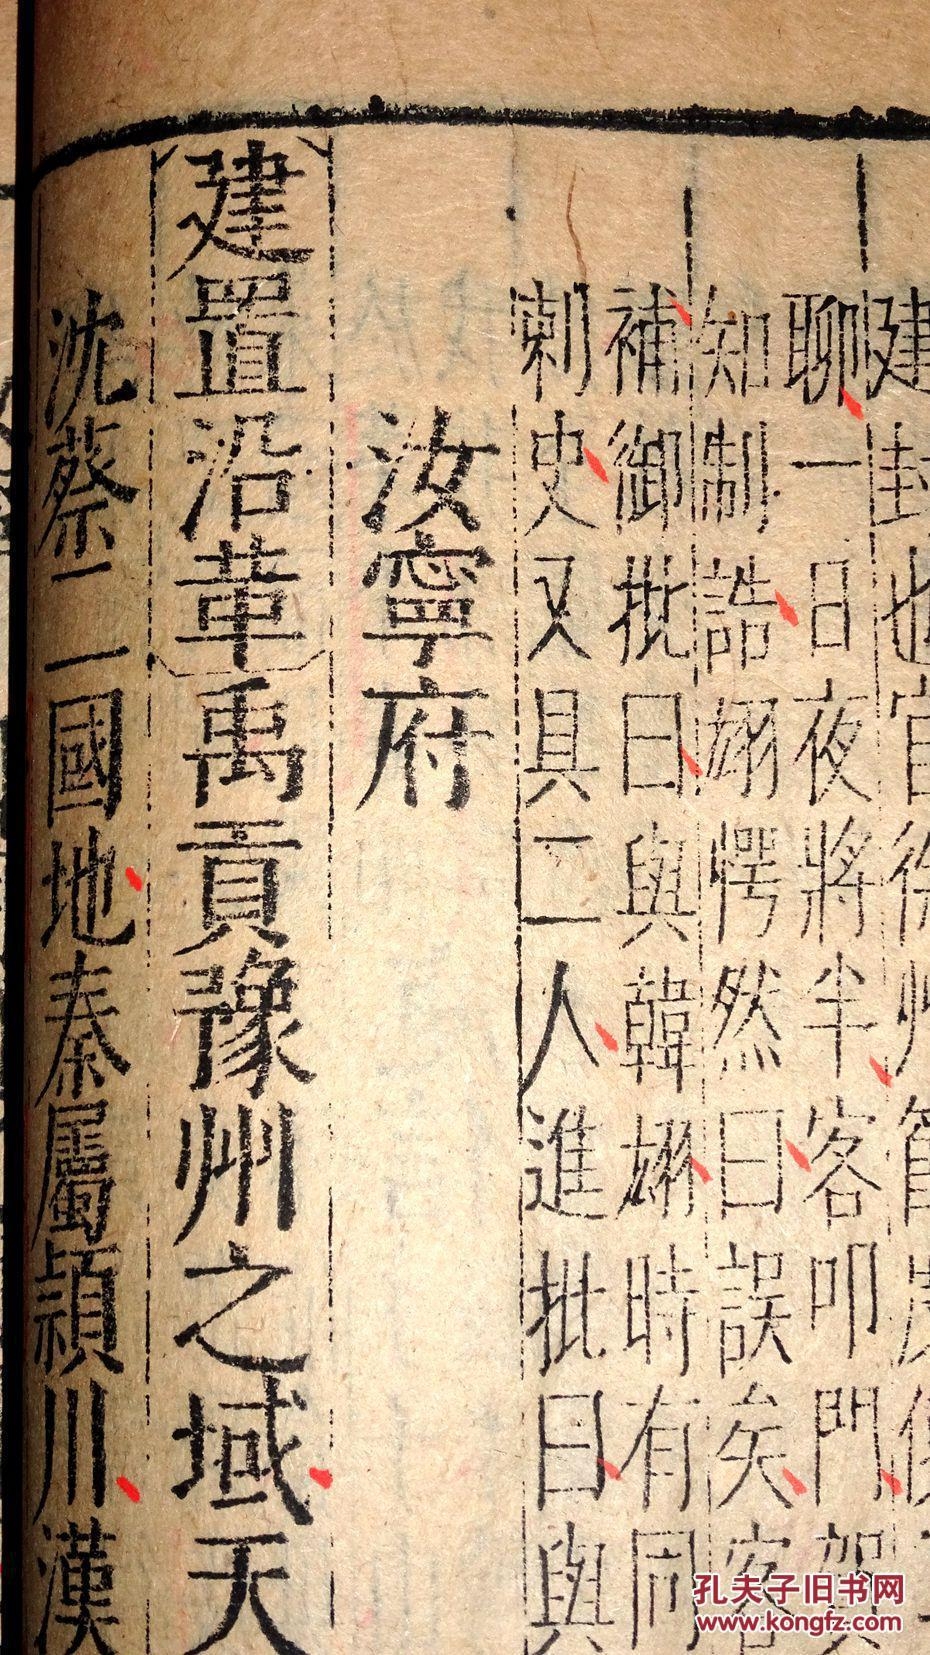 建封也官徐州
聊一日夜將半客叩門賀
知制誥翃愕然曰誤矣客
補御批曰與韓翃時有同
刺史又具二人進批曰與
汝寧府
建置沿革禹貢豫州之域天
沈蔡二國地秦屬潁川漢
孔夫子旧书网
www.kongfz.com